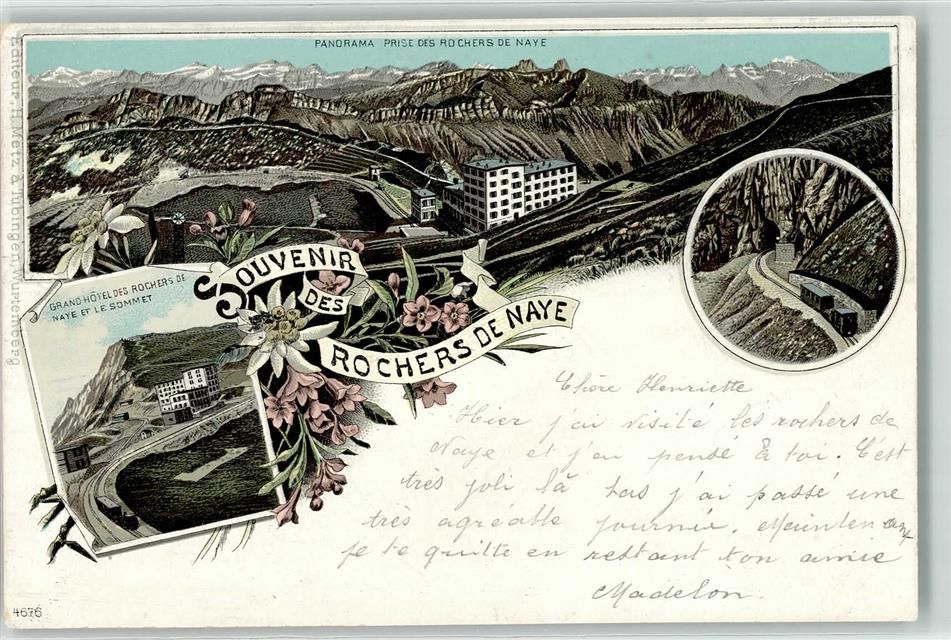 PANORAMA PRISE DES ROCHERS DE NAYE
Editeur, H. Metz à Tübingen Wurtemberg
GRAND-HÔTEL DES ROCHERS DE
NAYE ET LE SOMMET
SOUVENIR
DES
ROCHERS DE NAYE
Chère Henriette
Hier j'ai visité les rochers de
Naye et j'ai pensé à toi. C'est
très joli là bas j'ai passé une
très agréable journée. Maintenant
je te quitte en restant ton amie
Madelon.
4676